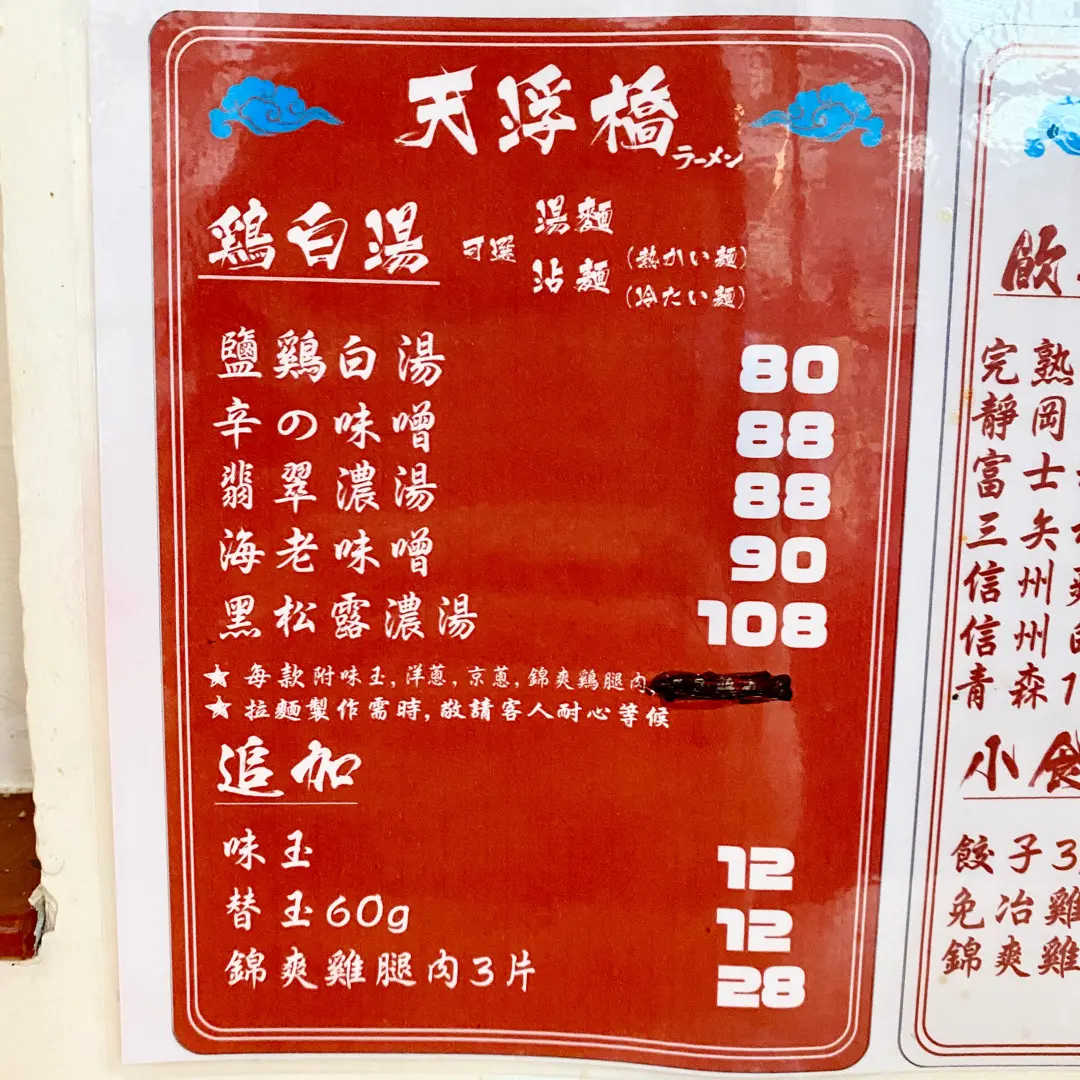 天浮橋
ラーメン
鶏白湯 可選 湯麵
沾麵 (熱かい麵)
(冷たい麵)
鹽鶏白湯 80
辛の味噌 88
翡翠濃湯 88
海老味噌 90
黑松露濃湯 108
★ 每款附味玉, 洋蔥, 京蔥, 錦爽鶏腿肉,
★ 拉麵製作需時, 敬請客人耐心等候
追加
味玉 12
替玉60g 12
錦爽雞腿肉3片 28
飲
完熟
靜岡
富士
三矢
信州
信州
青森1
小食
餃子3
免治雞
錦爽雞